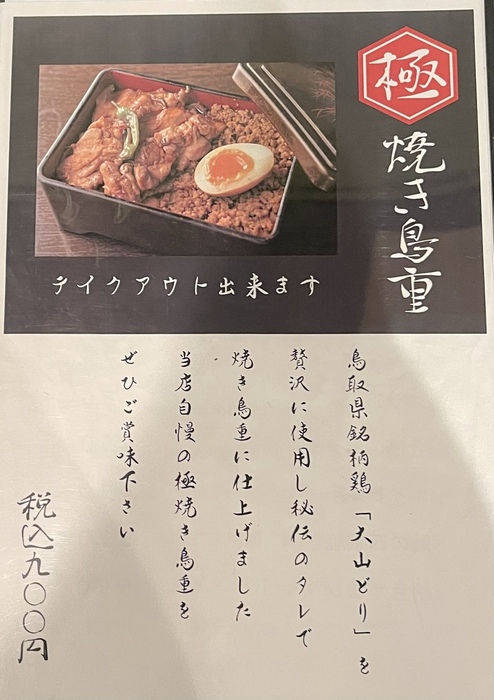 極
焼き鳥重
テイクアウト出来ます
鳥取県銘柄鶏「大山どり」を
贅沢に使用し秘伝のタレで
焼き鳥重に仕上げました
当店自慢の極焼き鳥重を
ぜひご賞味下さい
税込九〇〇円